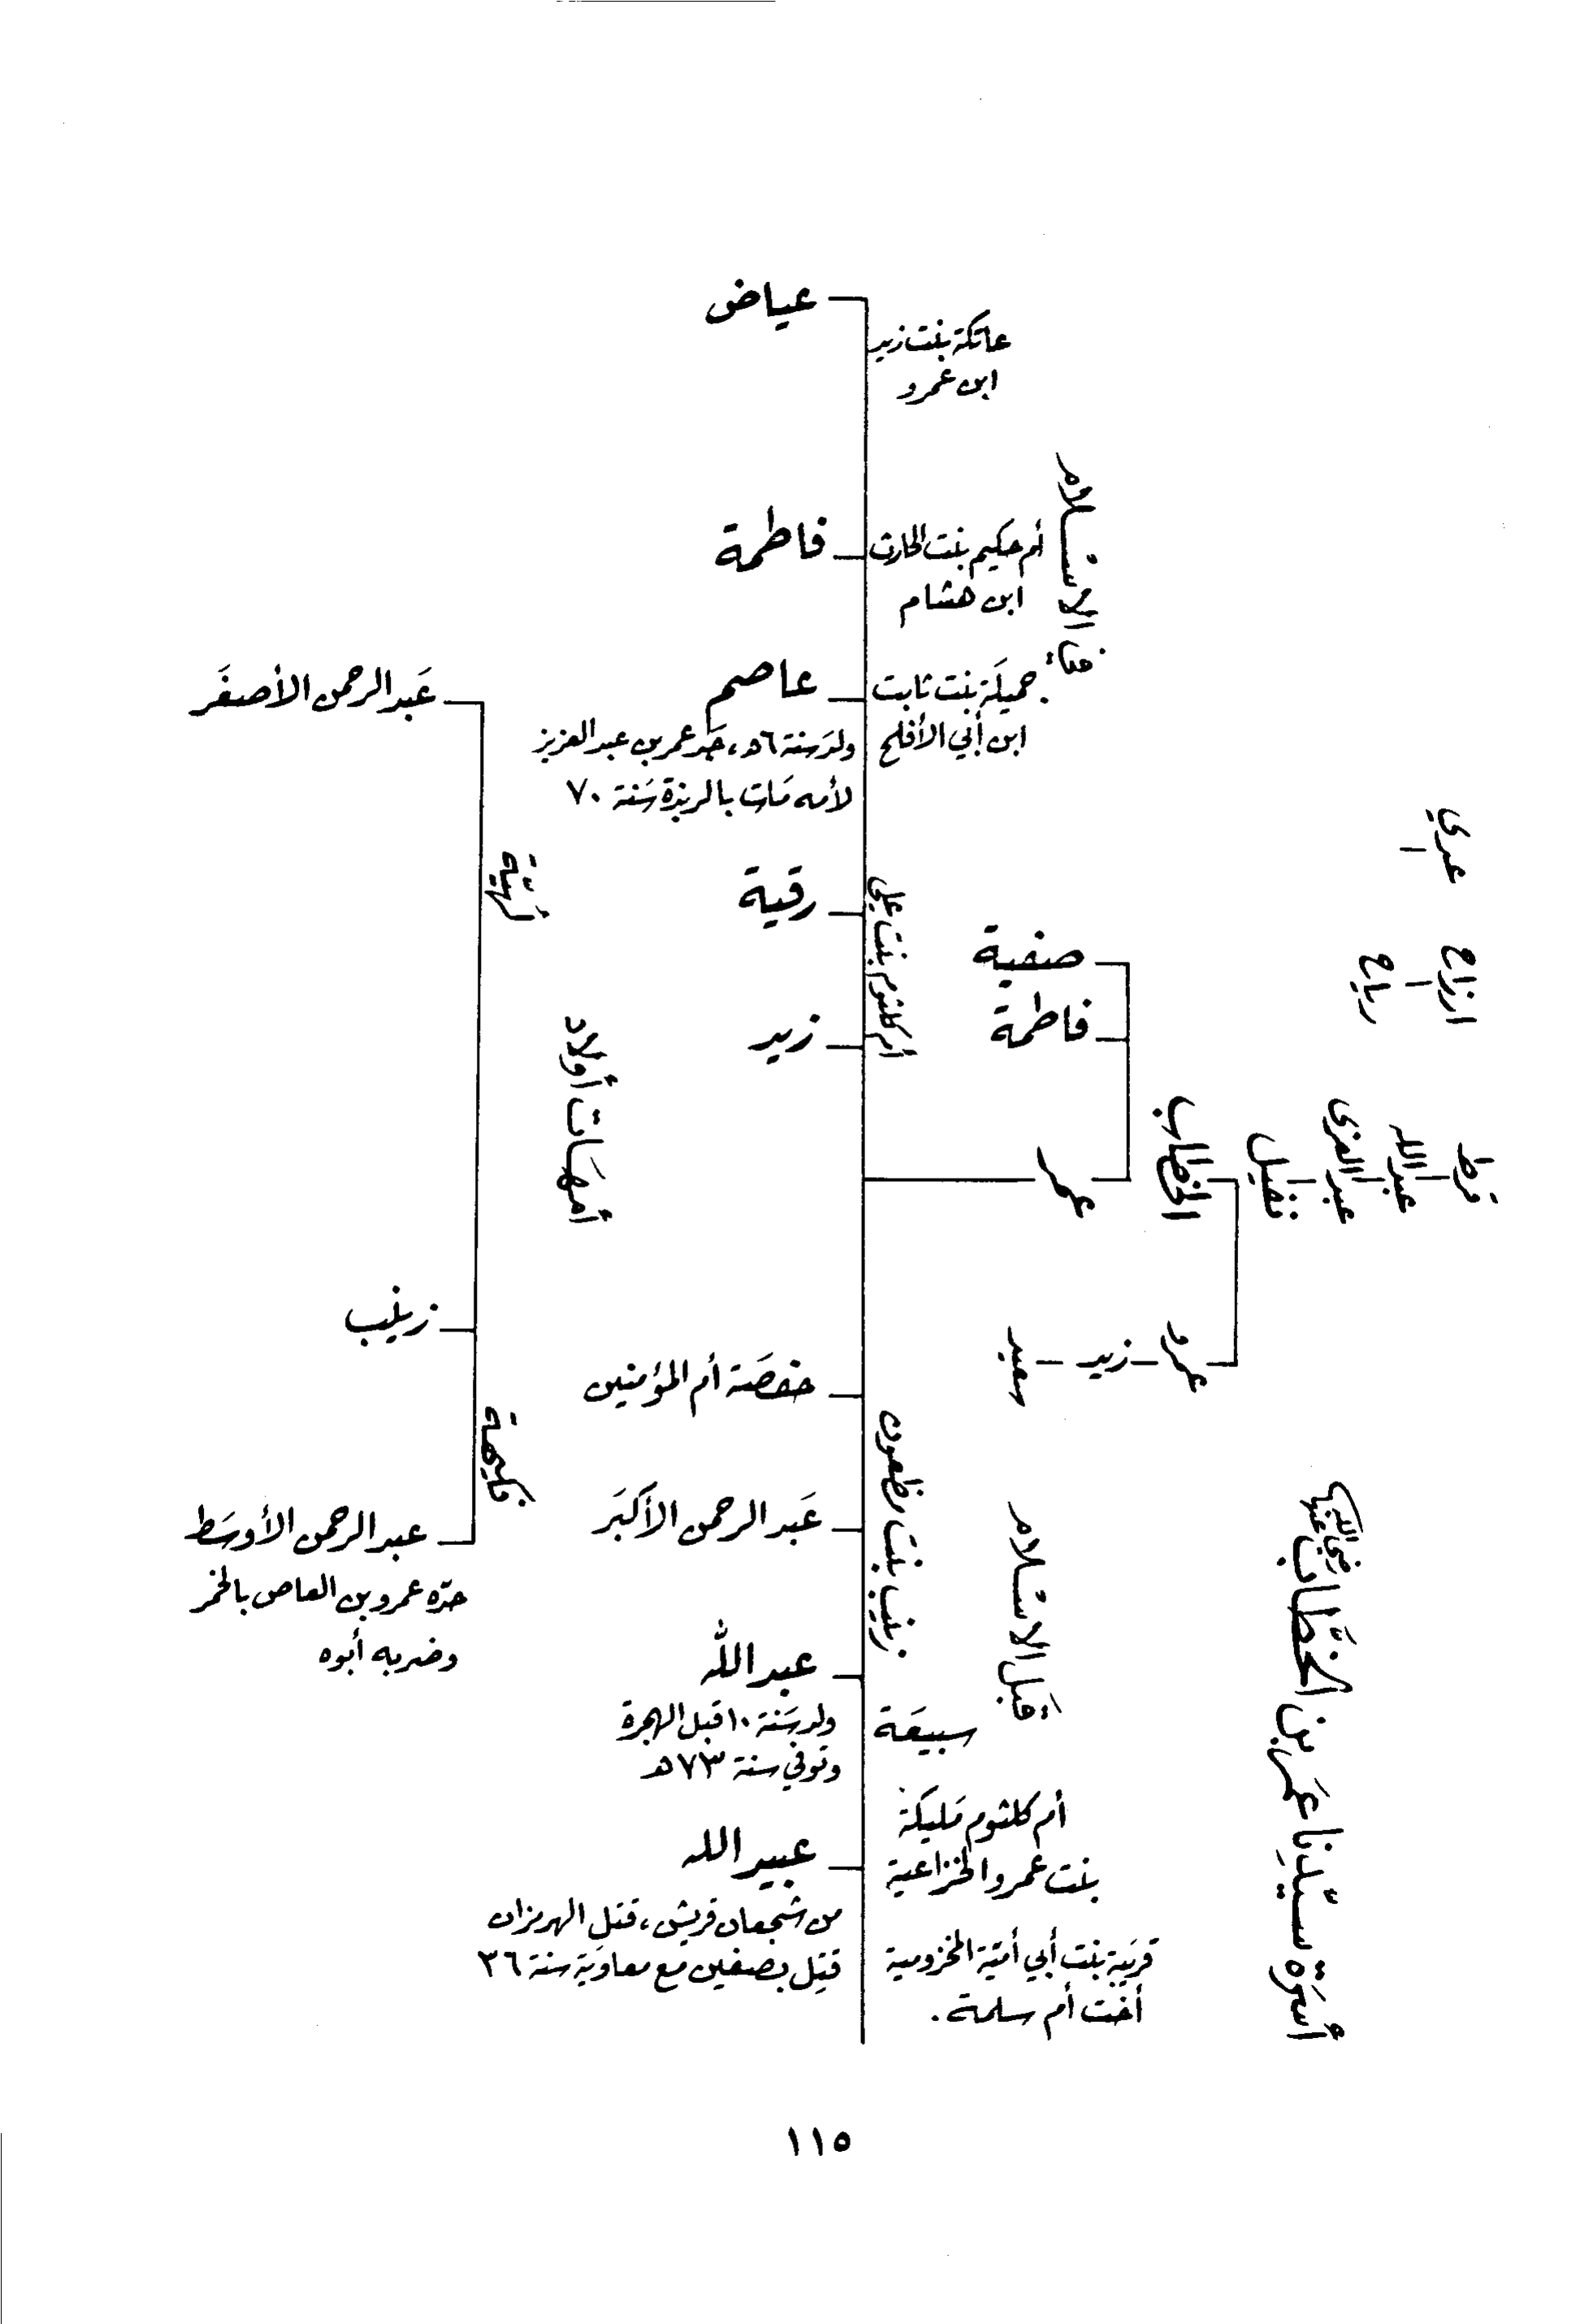 أسرة سيّدنا عمر بن الخطاب
رضي الله عنه
عدي
ارزاح
رياح
قرط
عبد الله
عبد العزى
نفيل
الخطاب
صفية
فاطمة
عمر
عمرو
زيد
سعيد
في الاسلام
عاتكة بنت زيد
ابن عمرو
عياض
أم حكيم بنت الحارث
ابن هشام
فاطمة
جميلة بنت ثابت
ابن أبي الأفلح
عاصم
ولد سنة ٦ هـ، جد عمر بن عبد العزيز
لأمه مات بالربذة سنة ٧٠
أم كلثوم بنت علي
رقية
زيد
قبل الاسلام
زينب بنت مظعون
حفصة أم المؤمنين
عبد الرحمن الأكبر
عبد الله
ولد سنة ١٠ قبل الهجرة
وتوفي سنة ٧٣ هـ
سبيعة
أم كلثوم مليكة
بنت عمرو الخزاعية
عبيد الله
من شجعان قريش، قتل الهرمزان
قتل بصفين مع معاوية سنة ٣٦
قريبة بنت أبي أمية المخزومية
أخت أم سلمة.
أمهات أولاد
لهية
عبد الرحمن الأصغر
زينب
فكيهة
عبد الرحمن الأوسط
حدّه عمرو بن العاص بالخمر
وضربه أبوه
١١٥